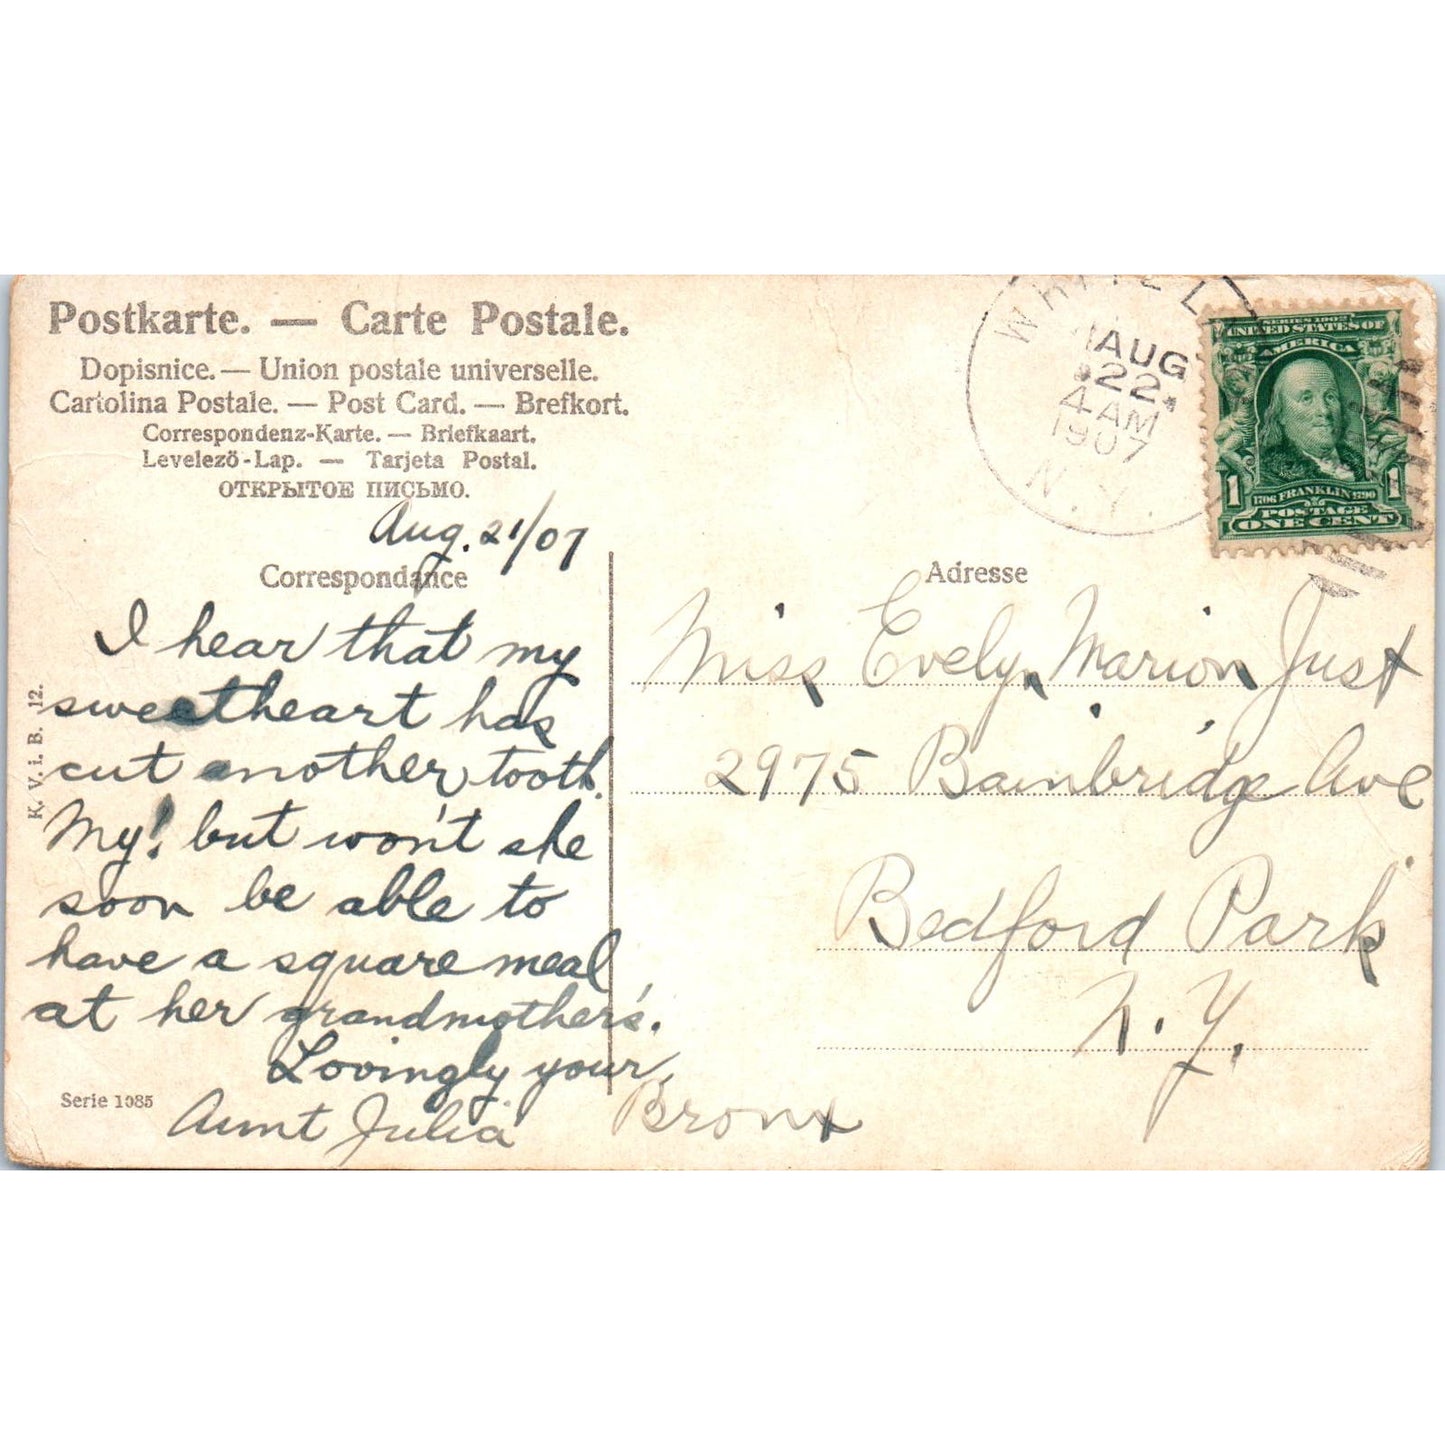 Postkarte. — Carte Postale.
Dopisnice. — Union postale universelle.
Cartolina Postale. — Post Card. — Brefkort.
Correspondenz-Karte. — Briefkaart.
Levelező-Lap. — Tarjeta Postal.
ОТКРЫТОЕ ПИСЬМО.
Aug. 21/07
Correspondance
I hear that my
sweetheart has
cut another tooth.
My! but won't she
soon be able to
have a square meal
at her grandmother's.
Lovingly your
Aunt Julia
Serie 1085
K. V. i. B. 12.
AUG
22
4 AM
1907
N.Y.
SERIES 1902
UNITED STATES OF
AMERICA
1706 FRANKLIN 1790
1 1
POSTAGE
ONE CENT
Adresse
Miss Evelyn Marion Just
2975 Bainbridge Ave
Bedford Park
N. Y.
Bronx